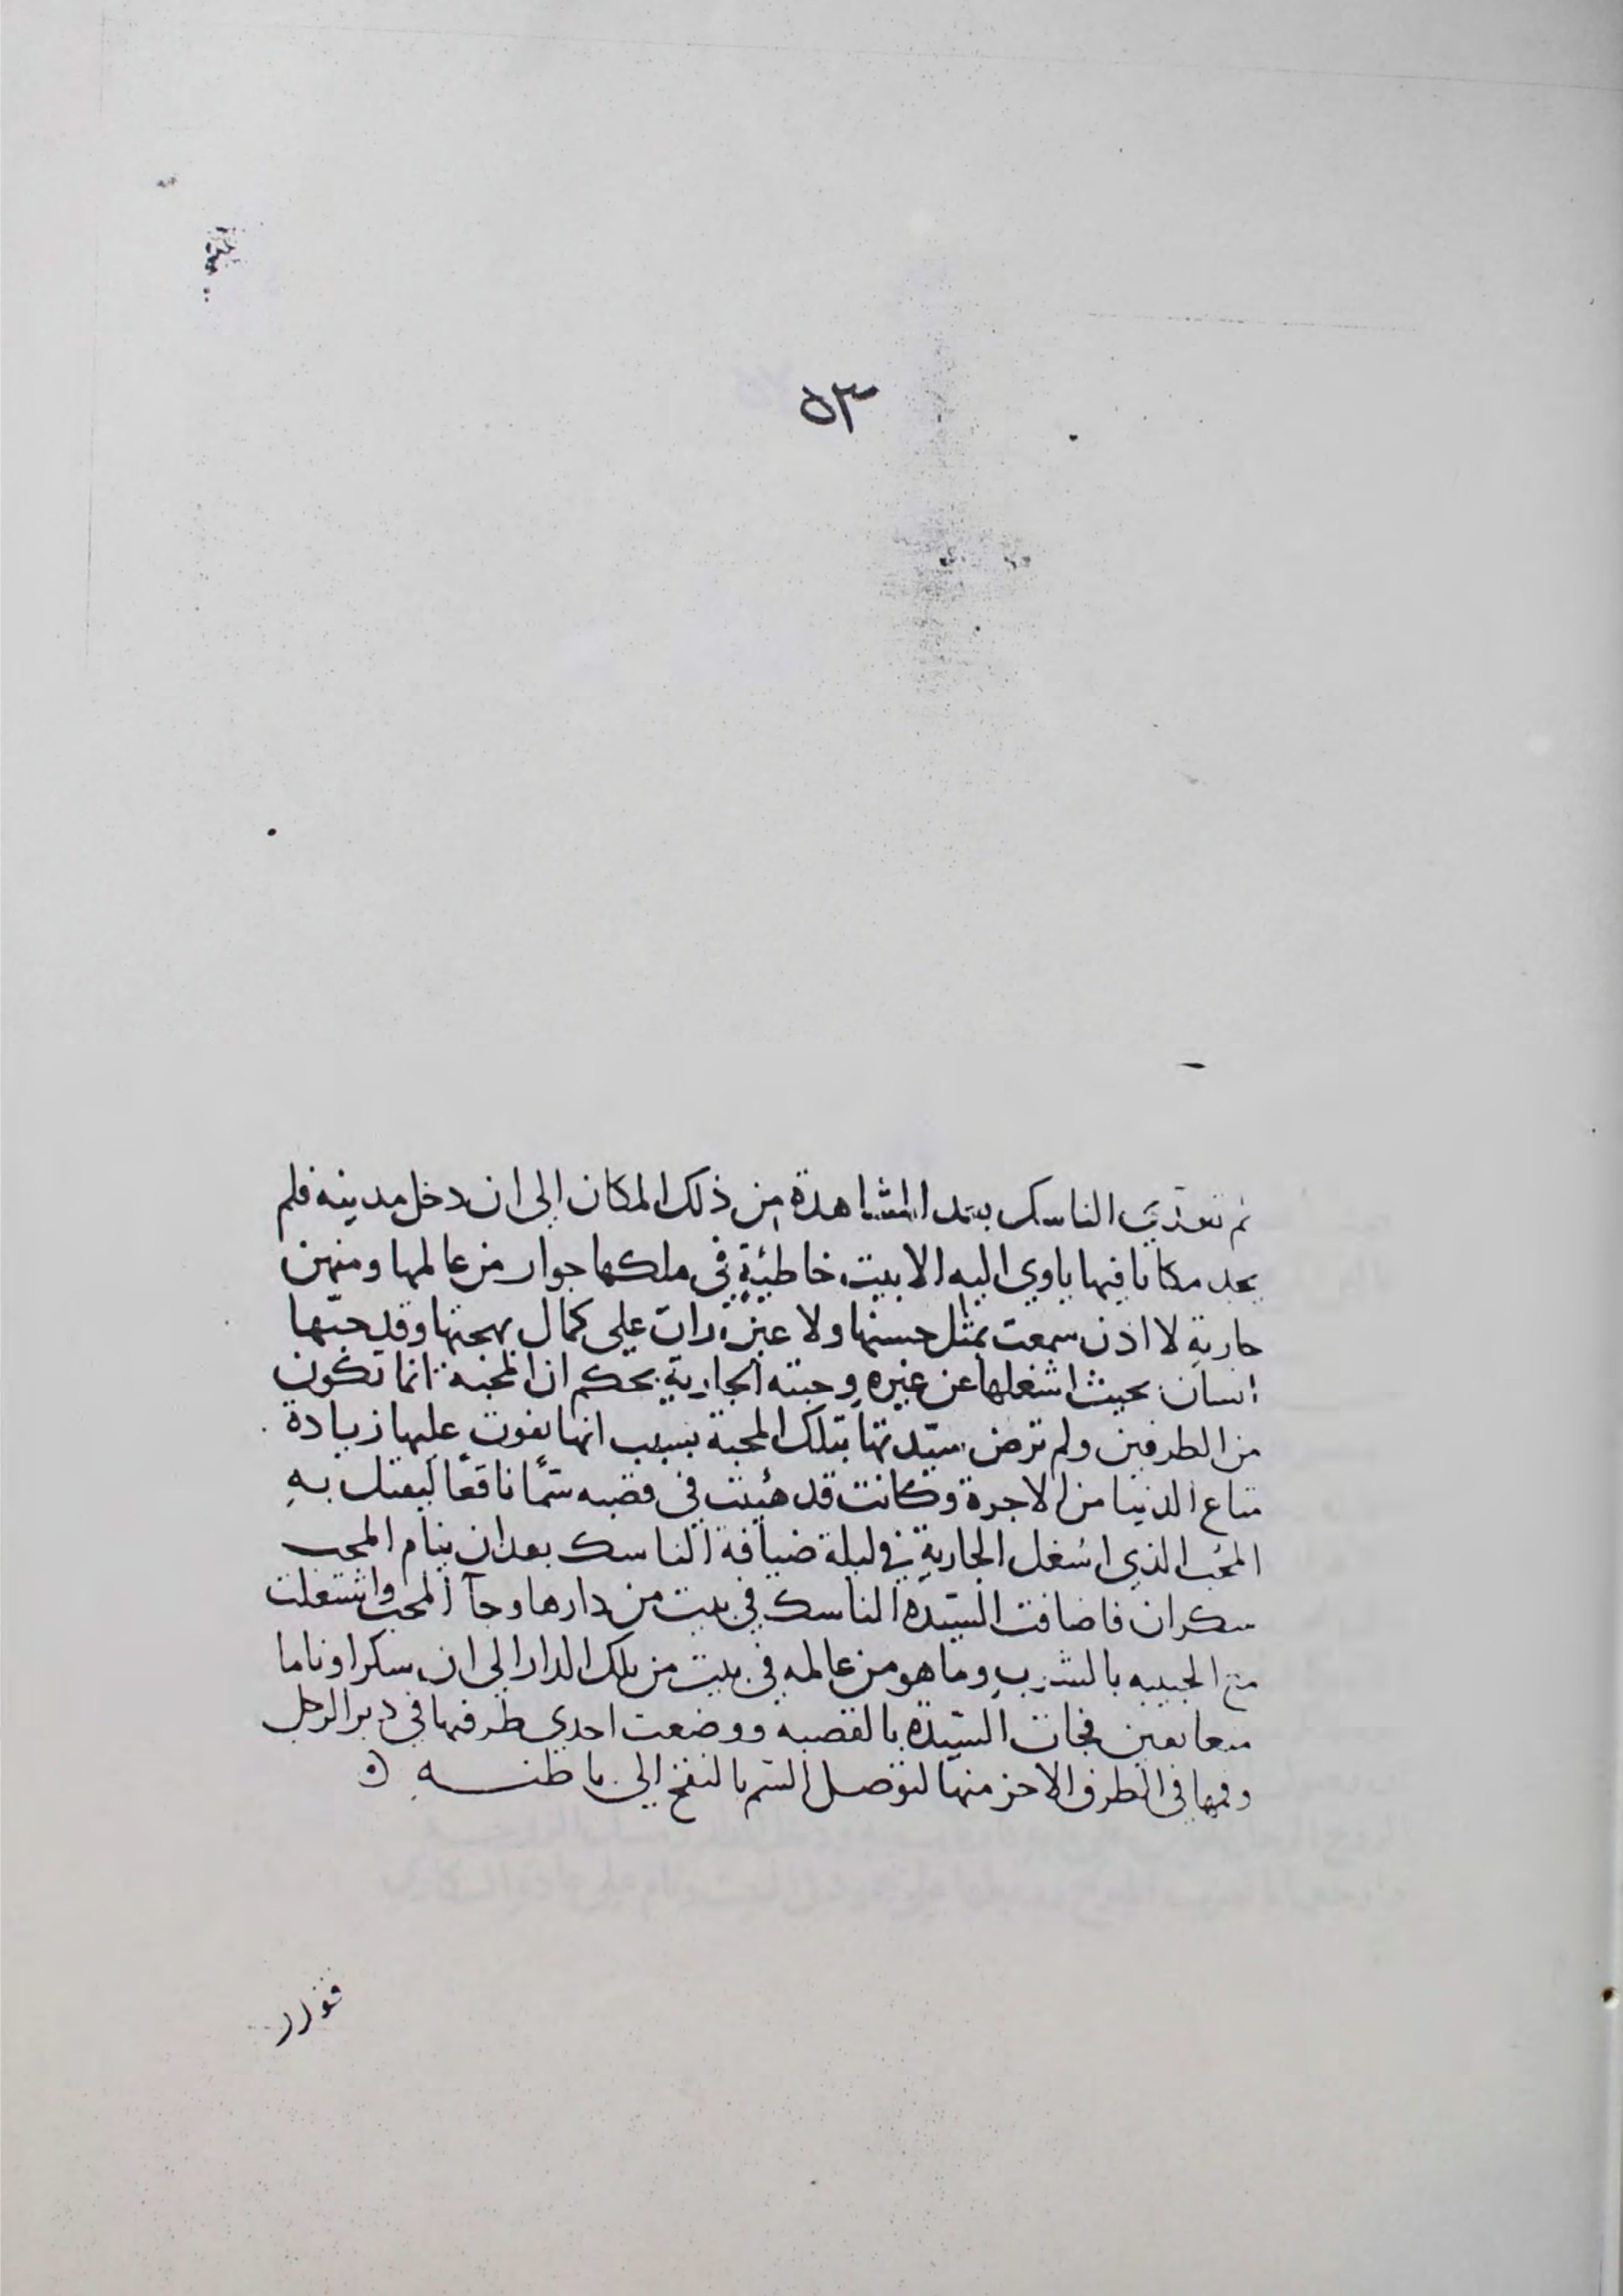 ٥٣
ثم تعدي الناسك بعد المشاهدة من ذلك المكان الى ان دخل مدينه فلم
يجد مكانا فيها ياوي اليه الا بيت خاطيةٍ في ملكها جوار من عالمها ومنهن
جارية لا اذن سمعت بمثل حسنها ولا عين رات على كمال بهجتها وقد حبّها
انسان بحيث اشغلها عن غيره وحبته الجارية بحكم ان المحبة انما تكون
من الطرفين ولم ترض سيّدتها بتلك المحبة بسبب انها يفوت عليها زيادة
متاع الدنيا من الاجرة وكانت قد هيئت في قصبه سمًّا ناقعًا ليقتل بهِ
المحب الذي اشغل الجارية في ليلة ضيافة الناسك بعد ان ينام المحب
سكران فاضافت السيّدة الناسك في بيت من دارها وجآ المحب واشتغلت
مع الحبيبه بالشرب وما هو من عالمه في بيت من تلك الدار الى ان سكرا وناما
متعانقين فجات السيّدة بالقصبه ووضعت احدى طرفيها في دبر الرجل
وفمها في الطرف الاخر منها لتوصل السّم بالنفخ الى باطنــه